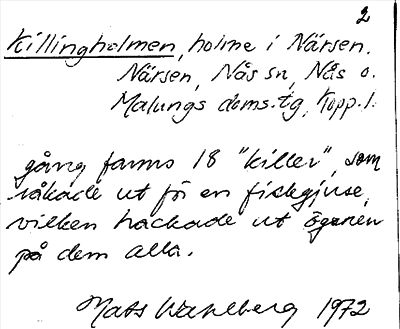 2
Killingholmen, holme i Närsen.
Närsen, Nås sn, Nås o.
Malungs doms.tg, Kopp.l.
gång fanns 18 "killer", som
råkade ut för en fiskgjuse,
vilken hackade ut ögonen
på dem alla.
Mats Wahlberg 1972